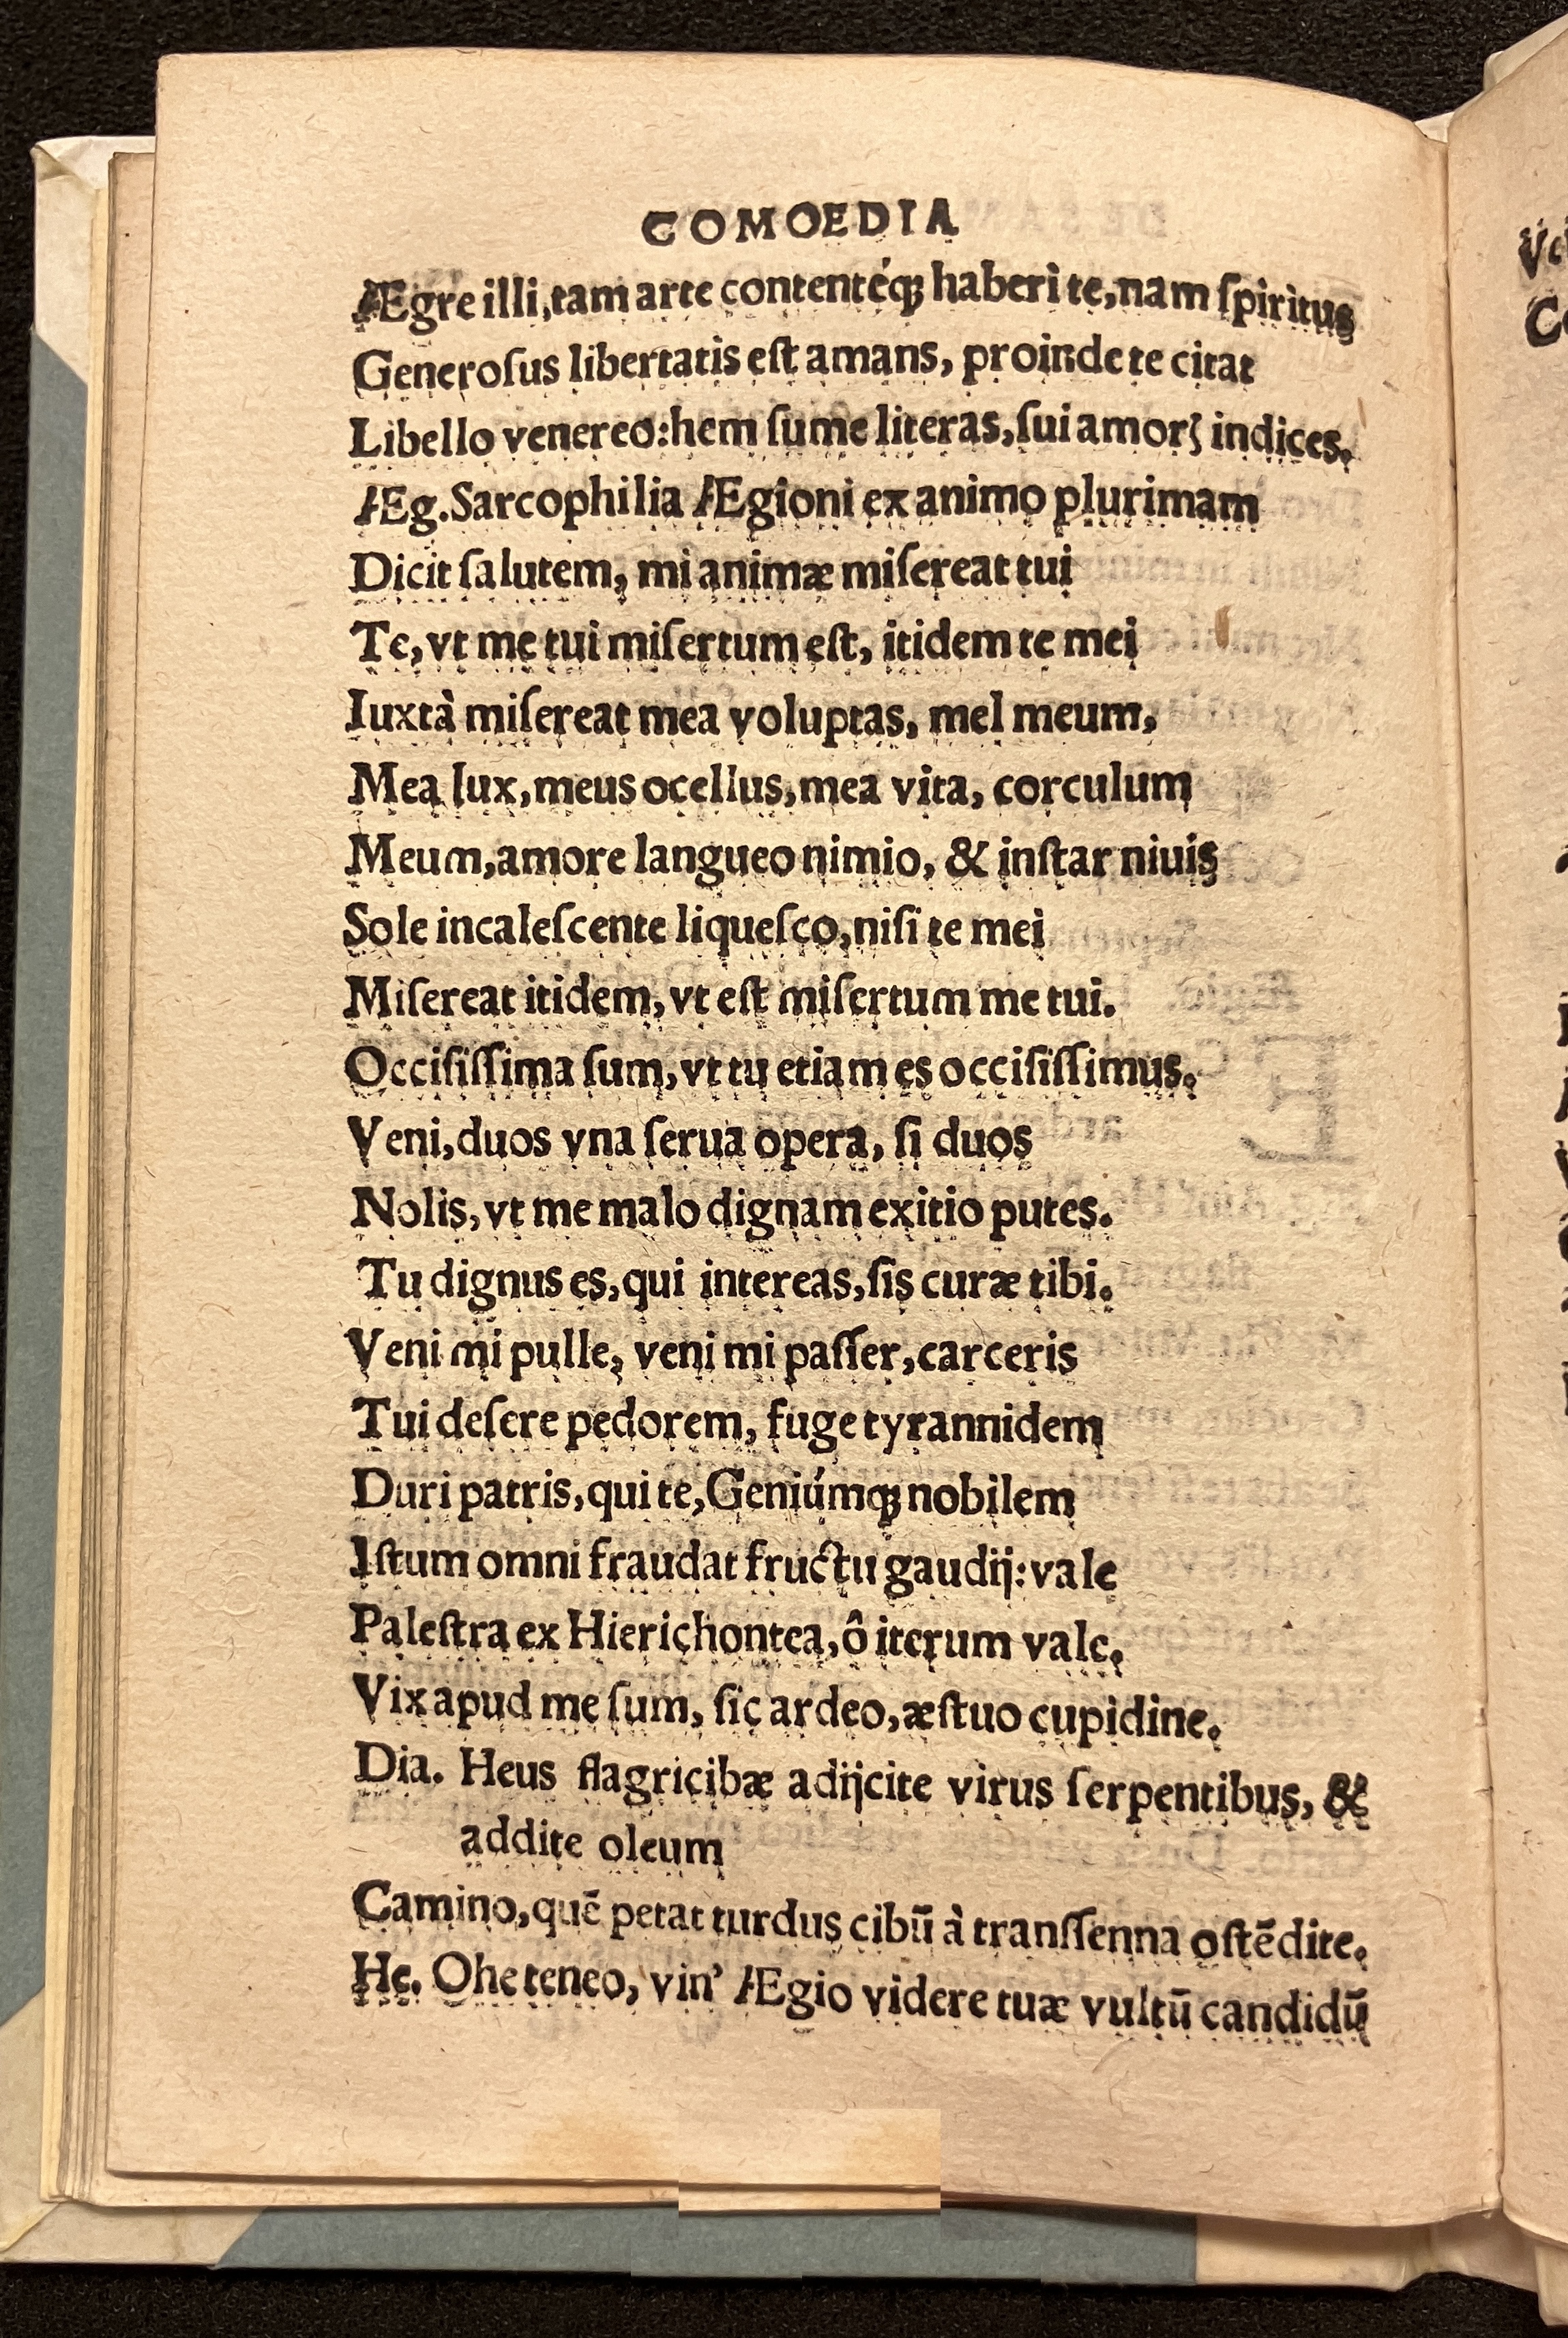 COMOEDIA
Ægre illi, tam arte contentéq; haberi te, nam ſpiritus
Generoſus libertatis eſt amans, proinde te citat
Libello venereo: hem ſume literas, ſui amorꝭ indices.
Æg. Sarcophilia Ægioni ex animo plurimam
Dicit ſalutem, mi animæ miſereat tui
Te, vt me tui miſertum eſt, itidem te mei
Iuxtà miſereat mea voluptas, mel meum,
Mea lux, meus ocellus, mea vita, corculum
Meum, amore langueo nimio, & inſtar niuis
Sole incaleſcente liqueſco, niſi te mei
Miſereat itidem, vt eſt miſertum me tui.
Occiſiſſima ſum, vt tu etiam es occiſiſſimus.
Veni, duos vna ſerua opera, ſi duos
Nolis, vt me malo dignam exitio putes.
Tu dignus es, qui intereas, ſis curæ tibi.
Veni mi pulle, veni mi paſſer, carceris
Tui deſere pedorem, fuge tyrannidem
Duri patris, qui te, Geniúmq; nobilem
Iſtum omni fraudat fructu gaudij: vale
Paleſtra ex Hierichontea, ô iterum vale.
Vix apud me ſum, ſic ardeo, æſtuo cupidine.
Dia. Heus flagricibæ adijcite virus ſerpentibus, &
addite oleum
Camino, quē petat turdus cibū à tranſſenna oſtēdite.
He. Ohe teneo, vin' Ægio videre tuæ vultū candidū